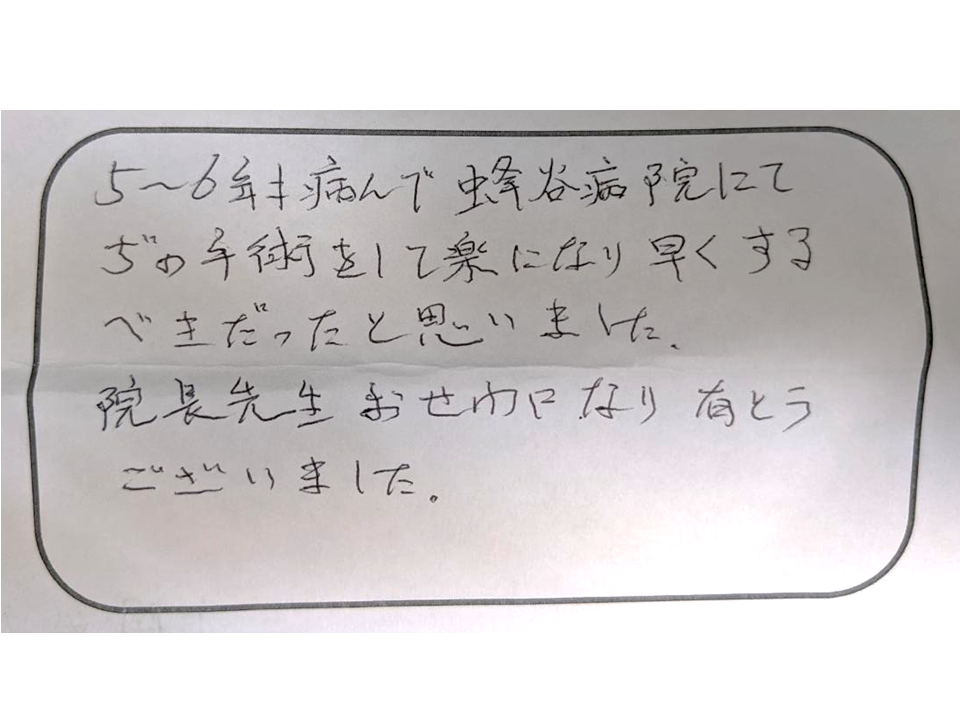 5~6年も病んで蜂谷病院にて
ぢの手術をして楽になり早くする
べきだったと思いました。
院長先生おせわになり有とう
ございました。